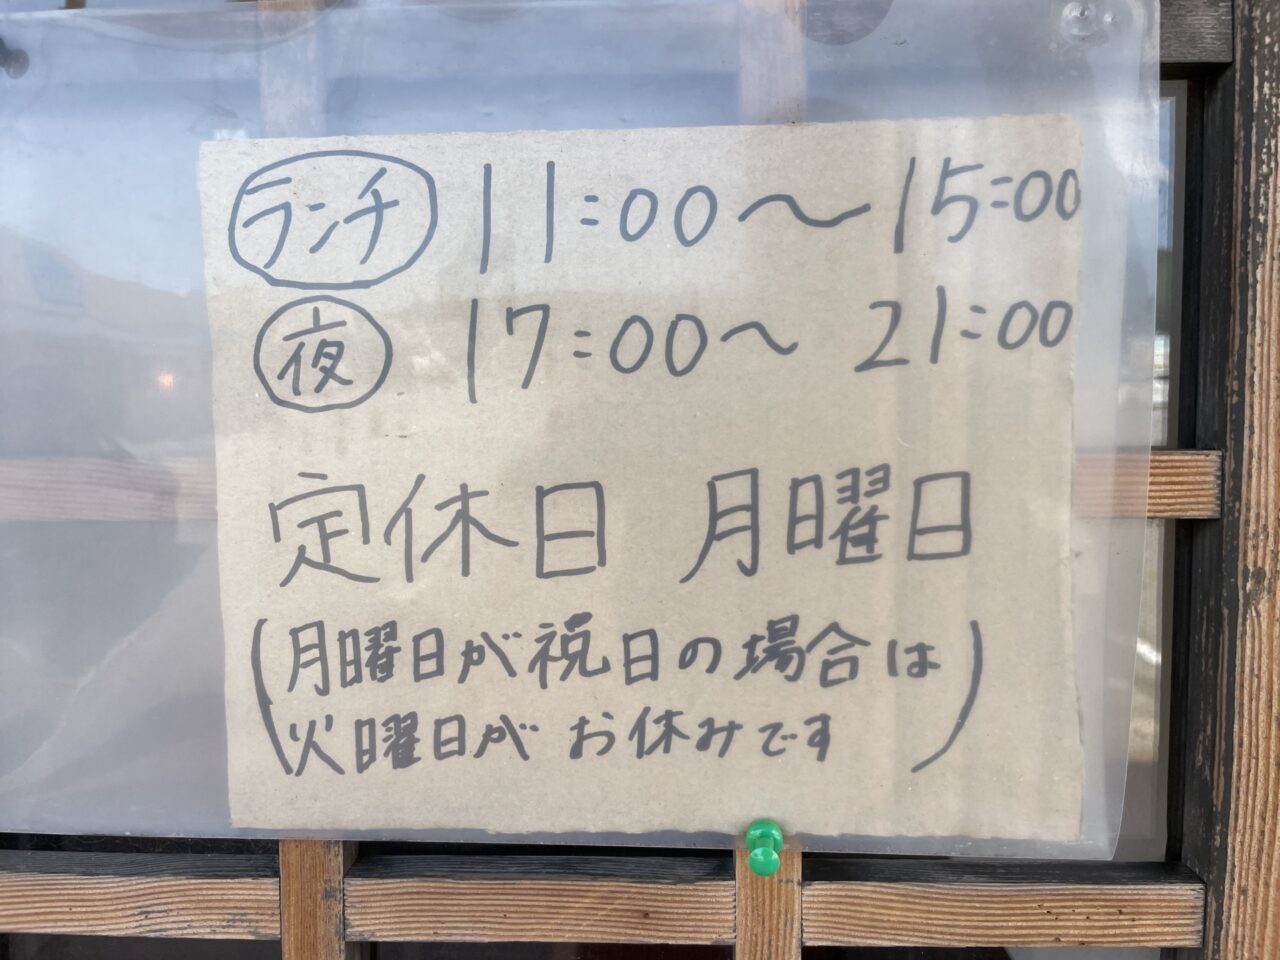 ランチ 11:00〜15:00
夜 17:00〜21:00
定休日 月曜日
(月曜日が祝日の場合は
火曜日がお休みです)